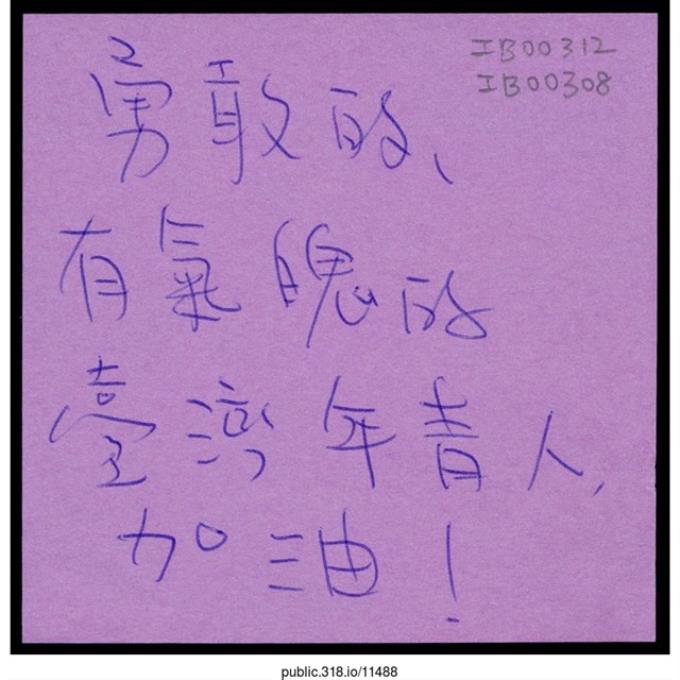 IB00312
IB00308
勇敢的、
有氣魄的
臺灣年青人,
加油!
public.318.io/11488